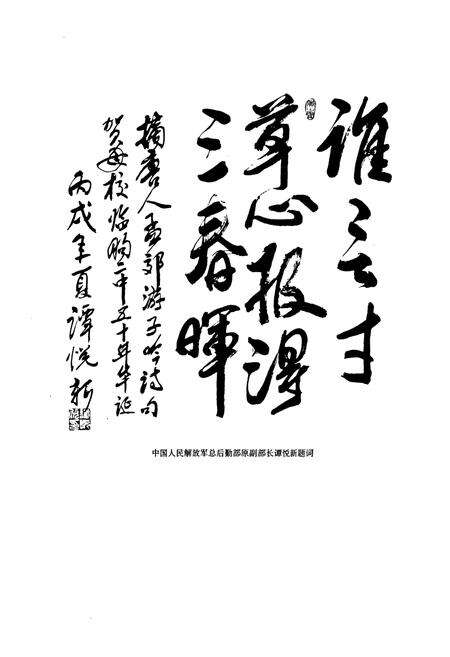 谁言寸
草心报得
三春晖
摘唐人孟郊游子吟诗句
贺母校临朐二中五十年华诞
丙戌年夏谭悦新
中国人民解放军总后勤部原副部长谭悦新题词